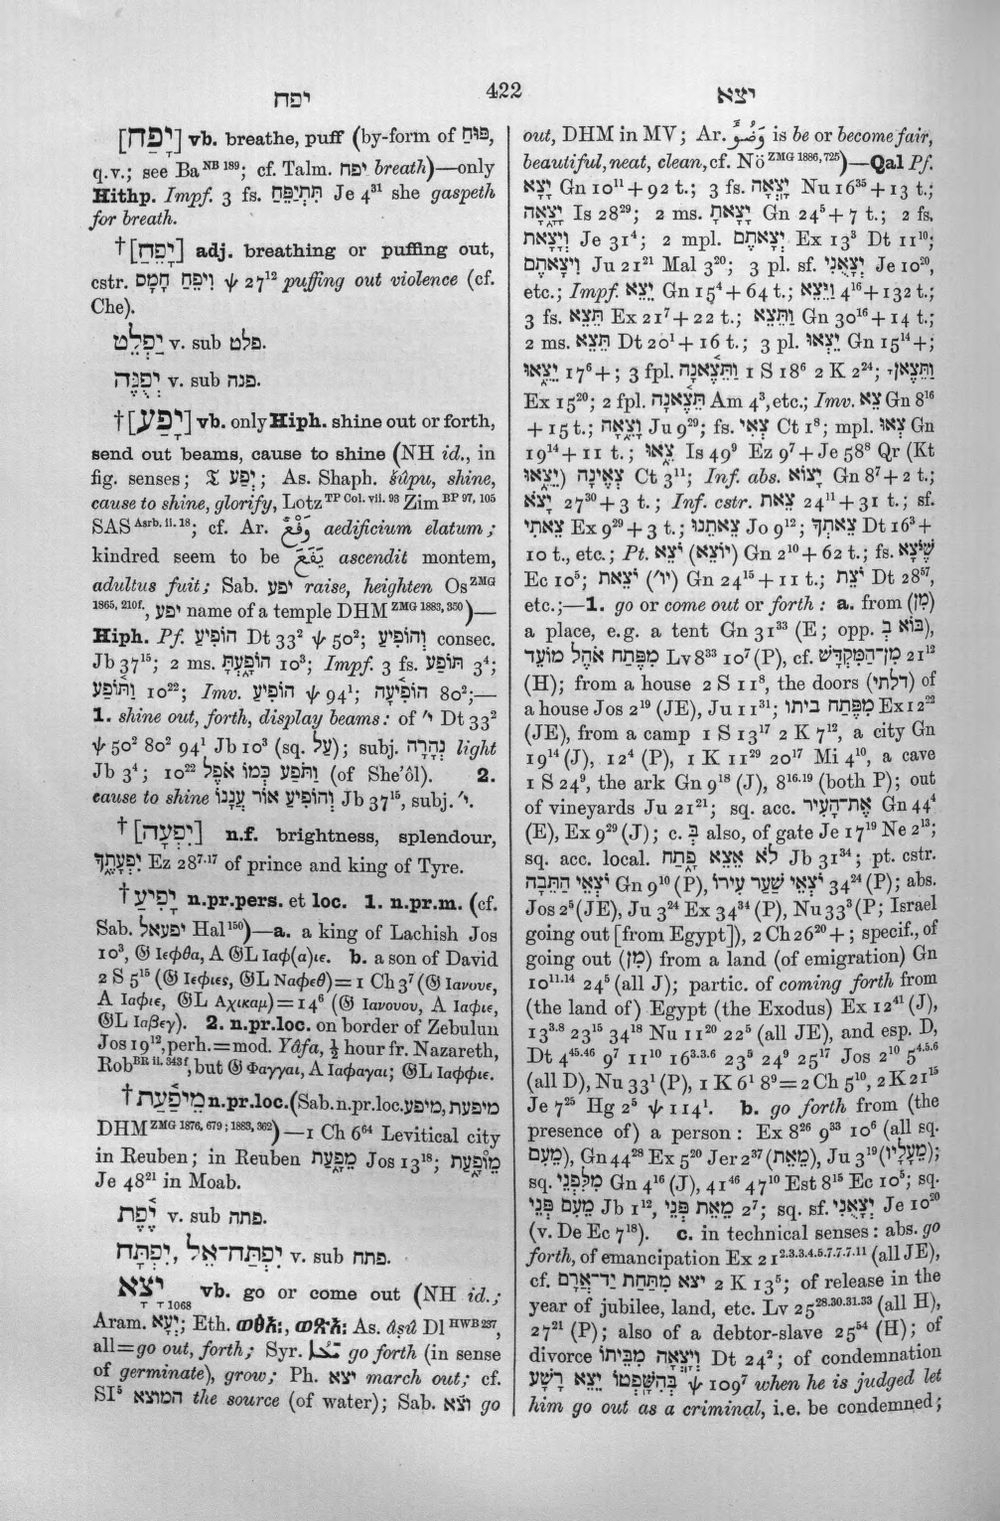 יפח
422
יצא
[יָפַח] vb. breathe, puff (by-form of פּוּחַ,
q.v.; see Ba NB 189; cf. Talm. יפח breath)—only
Hithp. Impf. 3 fs. תִּתְיַפֵּחַ Je 4³¹ she gaspeth
for breath.
†[יָפֵחַ] adj. breathing or puffing out,
cstr. וִיפֵחַ חָמָס ψ 27¹² puffing out violence (cf.
Che).
יַפְלֵט v. sub פלט.
יְפֻנֶּה v. sub פנה.
†[יָפַע] vb. only Hiph. shine out or forth,
send out beams, cause to shine (NH id., in
fig. senses; 𝔗 יְפַע; As. Shaph. šûpu, shine,
cause to shine, glorify, Lotz TP Col. vii. 98 Zim BP 97, 105
SAS Asrb. ii. 18; cf. Ar. aedificium elatum;
kindred seem to be يَفَعَ ascendit montem,
adultus fuit; Sab. יפע raise, heighten Os ZMG
1865, 210f., יפע name of a temple DHM ZMG 1883, 350)—
Hiph. Pf. הוֹפִיעַ Dt 33² ψ 50²; וְהוֹפִיעַ consec.
Jb 37¹⁵; 2 ms. הוֹפָ֑עְתָּ 10³; Impf. 3 fs. תּוֹפַע 3⁴;
וַתֹּפַע 10²²; Imv. הוֹפִיעַ ψ 94¹; הוֹפִיעָה 80²;—
1. shine out, forth, display beams: of י׳ Dt 33²
ψ 50² 80² 94¹ Jb 10³ (sq. עַל); subj. נְהָרָה light
Jb 3⁴; 10²² וַתֹּפַע כְּמוֹ אֹפֶל (of She'ôl). 2.
cause to shine וְהוֹפִיעַ אוֹר עֲנָנוֹ Jb 37¹⁵, subj. י׳.
†[יִפְעָה] n.f. brightness, splendour,
יִפְעָתֶךָ Ez 28⁷·¹⁷ of prince and king of Tyre.
†יָפִיעַ n.pr.pers. et loc. 1. n.pr.m. (cf.
Sab. יפעאל Hal¹⁵⁰)—a. a king of Lachish Jos
10³, 𝔊 Ιεφθα, A 𝔊L Ιαφ(α)ιε. b. a son of David
2 S 5¹⁵ (𝔊 Ιεφιες, 𝔊L Ναφεθ)=1 Ch 3⁷ (𝔊 Ιανουε,
A Ιαφιε, 𝔊L Αχικαμ)=14⁶ (𝔊 Ιανουου, A Ιαφιε,
𝔊L Ιαβεγ). 2. n.pr.loc. on border of Zebulun
Jos 19¹², perh.=mod. Yâfa, ½ hour fr. Nazareth,
Rob BR ii. 343f, but 𝔊 Φαγγαι, A Ιαφαγαι; 𝔊L Ιαφφιε.
†מֵיפַעַת n.pr.loc. (Sab. n.pr.loc. מיפע, מיפעת
DHM ZMG 1876, 679; 1883, 362)—1 Ch 6⁶⁴ Levitical city
in Reuben; in Reuben מֵפָעַת Jos 13¹⁸; מוֹפָעַת
Je 48²¹ in Moab.
יֶפֶת v. sub פתה.
יִפְתָּח, יִפְתַּח־אֵל v. sub פתח.
יָצָא 1068 vb. go or come out (NH id.;
Aram. יְעָא; Eth. ወፅአ:, ወፃእ: As. âṣû Dl HWB 237,
all=go out, forth; Syr. go forth (in sense
of germinate), grow; Ph. יצא march out; cf.
SI⁵ המוצא the source (of water); Sab. וצא go
out, DHM in MV; Ar. وَضُؤَ is be or become fair,
beautiful, neat, clean, cf. Nö ZMG 1886, 725)—Qal Pf.
יָצָא Gn 10¹¹ + 92 t.; 3 fs. יָצְאָה Nu 16³⁵ + 13 t.;
יָצָאָה Is 28²⁹; 2 ms. יָצָאתָ Gn 24⁵ + 7 t.; 2 fs.
וְיָצָאת Je 31⁴; 2 mpl. יְצָאתֶם Ex 13³ Dt 11¹⁰;
וִיצָאתֶם Ju 21²¹ Mal 3²⁰; 3 pl. sf. יְצָאֻנִי Je 10²⁰,
etc.; Impf. יֵצֵא Gn 15⁴ + 64 t.; וַיֵּצֵא 4¹⁶ + 132 t.;
3 fs. תֵּצֵא Ex 21⁷ + 22 t.; וַתֵּצֵא Gn 30¹⁶ + 14 t.;
2 ms. תֵּצֵא Dt 20¹ + 16 t.; 3 pl. יֵצְאוּ Gn 15¹⁴ +;
יֵצֵאוּ 17⁶ +; 3 fpl. וַתֵּצֶאנָה 1 S 18⁶ 2 K 2²⁴; וַתֵּצֶאןָ־
Ex 15²⁰; 2 fpl. תֵּצֶאנָה Am 4³, etc.; Imv. צֵא Gn 8¹⁶
+ 15 t.; וָצֵאָה Ju 9²⁹; fs. צְאִי Ct 1⁸; mpl. צְאוּ Gn
19¹⁴ + 11 t.; צֵאוּ Is 49⁹ Ez 9⁷ + Je 50⁸ Qr (Kt
יֵצֵאוּ) צְאֶינָה Ct 3¹¹; Inf. abs. יָצוֹא Gn 8⁷ + 2 t.;
יָצֹא 27³⁰ + 3 t.; Inf. cstr. צֵאת 24¹¹ + 31 t.; sf.
צֵאתִי Ex 9²⁹ + 3 t.; צֵאתֵנוּ Jo 9¹²; צֵאתְךָ Dt 16³ +
10 t., etc.; Pt. יֹצֵא (יוֹצֵא) Gn 2¹⁰ + 62 t.; fs. שֶׁיֹּצָא
Ec 10⁵; יֹצֵאת (יו׳) Gn 24¹⁵ + 11 t.; יֹצֵת Dt 28⁵⁷,
etc.;—1. go or come out or forth: a. from (מִן)
a place, e.g. a tent Gn 31³³ (E; opp. בּוֹא בְּ),
מִפֶּתַח אֹהֶל מוֹעֵד Lv 8³³ 10⁷ (P), cf. מִן־הַמִּקְדָּשׁ 21¹²
(H); from a house 2 S 11⁸, the doors (דלתי) of
a house Jos 2¹⁹ (JE), Ju 11³¹; מִפֶּתַח ביתו Ex 12²²
(JE), from a camp 1 S 13¹⁷ 2 K 7¹², a city Gn
19¹⁴ (J), 12⁴ (P), 1 K 11²⁹ 20¹⁷ Mi 4¹⁰, a cave
1 S 24⁹, the ark Gn 9¹⁸ (J), 8¹⁶·¹⁹ (both P); out
of vineyards Ju 21²¹; sq. acc. אֶת־הָעִיר Gn 44⁴
(E), Ex 9²⁹ (J); c. בְּ also, of gate Je 17¹⁹ Ne 2¹³;
sq. acc. local. לֹא אֵצֵא פָתַח Jb 31³⁴; pt. cstr.
יֹצְאֵי הַתֵּבָה Gn 9¹⁰ (P), יֹצְאֵי שַׁעַר עִירוֹ 34²⁴ (P); abs.
Jos 2⁵ (JE), Ju 3²⁴ Ex 34³⁴ (P), Nu 33³ (P; Israel
going out [from Egypt]), 2 Ch 26²⁰ +; specif., of
going out (מִן) from a land (of emigration) Gn
10¹¹·¹⁴ 24⁵ (all J); partic. of coming forth from
(the land of) Egypt (the Exodus) Ex 12⁴¹ (J),
13³·⁸ 23¹⁵ 34¹⁸ Nu 11²⁰ 22⁵ (all JE), and esp. D,
Dt 4⁴⁵·⁴⁶ 9⁷ 11¹⁰ 16³·³·⁶ 23⁵ 24⁹ 25¹⁷ Jos 2¹⁰ 5⁴·⁵·⁶
(all D), Nu 33¹ (P), 1 K 6¹ 8⁹=2 Ch 5¹⁰, 2 K 21¹⁵
Je 7²⁵ Hg 2⁵ ψ 114¹. b. go forth from (the
presence of) a person: Ex 8²⁶ 9³³ 10⁶ (all sq.
מֵעִם), Gn 44²⁸ Ex 5²⁰ Jer 2³⁷ (מֵאֵת), Ju 3¹⁹ (מֵעָלָיו);
sq. מִלִּפְנֵי Gn 4¹⁶ (J), 41⁴⁶ 47¹⁰ Est 8¹⁵ Ec 10⁵; sq.
מֵעִם פְּנֵי Jb 1¹², מֵאֵת פְּנֵי 2⁷; sq. sf. יְצָאֻנִי Je 10²⁰
(v. De Ec 7¹⁸). c. in technical senses: abs. go
forth, of emancipation Ex 21²·³·³·⁴·⁵·⁷·⁷·⁷·¹¹ (all JE),
cf. יצא מִתַּחַת יַד־אֲרָם 2 K 13⁵; of release in the
year of jubilee, land, etc. Lv 25²⁸·³⁰·³¹·³³ (all H),
27²¹ (P); also of a debtor-slave 25⁵⁴ (H); of
divorce וְיָצְאָה מִבֵּיתוֹ Dt 24²; of condemnation
בְּהִשָּׁפְטוֹ יֵצֵא רָשָׁע ψ 109⁷ when he is judged let
him go out as a criminal, i.e. be condemned;